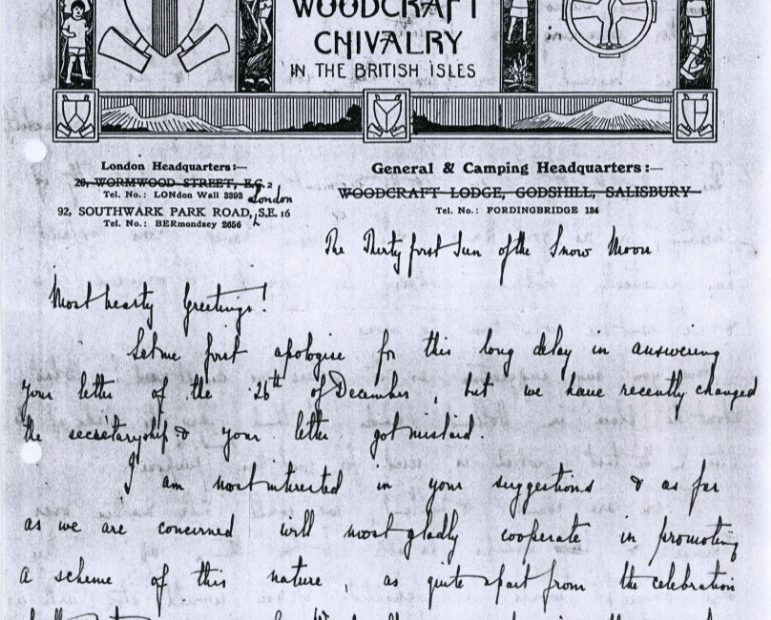 WOODCRAFT
CHIVALRY
IN THE BRITISH ISLES
London Headquarters:—
20, WORMWOOD STREET, E.C.2
Tel. No.: LONdon Wall 3303
London
92, SOUTHWARK PARK ROAD, S.E. 16
Tel. No.: BERmondsey 2656
General & Camping Headquarters:—
WOODCRAFT LODGE, GODSHILL, SALISBURY
Tel. No.: FORDINGBRIDGE 134
The Thirty first Sun of the Snow Moon
Most hearty Greetings!
Let me first apologise for this long delay in answering
your letter of the 26th of December, but we have recently changed
the secretaryship & your letter got mislaid.
I am most interested in your suggestions & as far
as we are concerned will most gladly cooperate in promoting
a scheme of this nature, as quite apart from the celebration